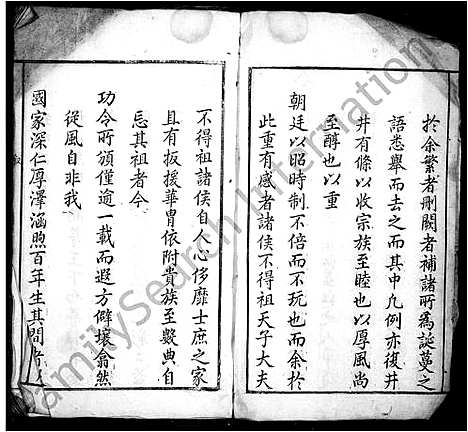 於余繁者刪闕者補諸所為誕蔓之
語悉舉而去之而其中凡例亦復井
井有條以收宗族至睦也以厚風尚
至醇也以重
朝廷以昭時制不倍而不玩也而余於
此重有感者諸侯不得祖天子大夫
不得祖諸侯自人心侈靡士庶之家
且有扳援華冑依附貴族至數典自
忘其祖者今
功令所頒僅逾一載而遐方僻壤翕然
從風自非我
國家深仁厚澤涵煦百年生其間者
FamilySearch International